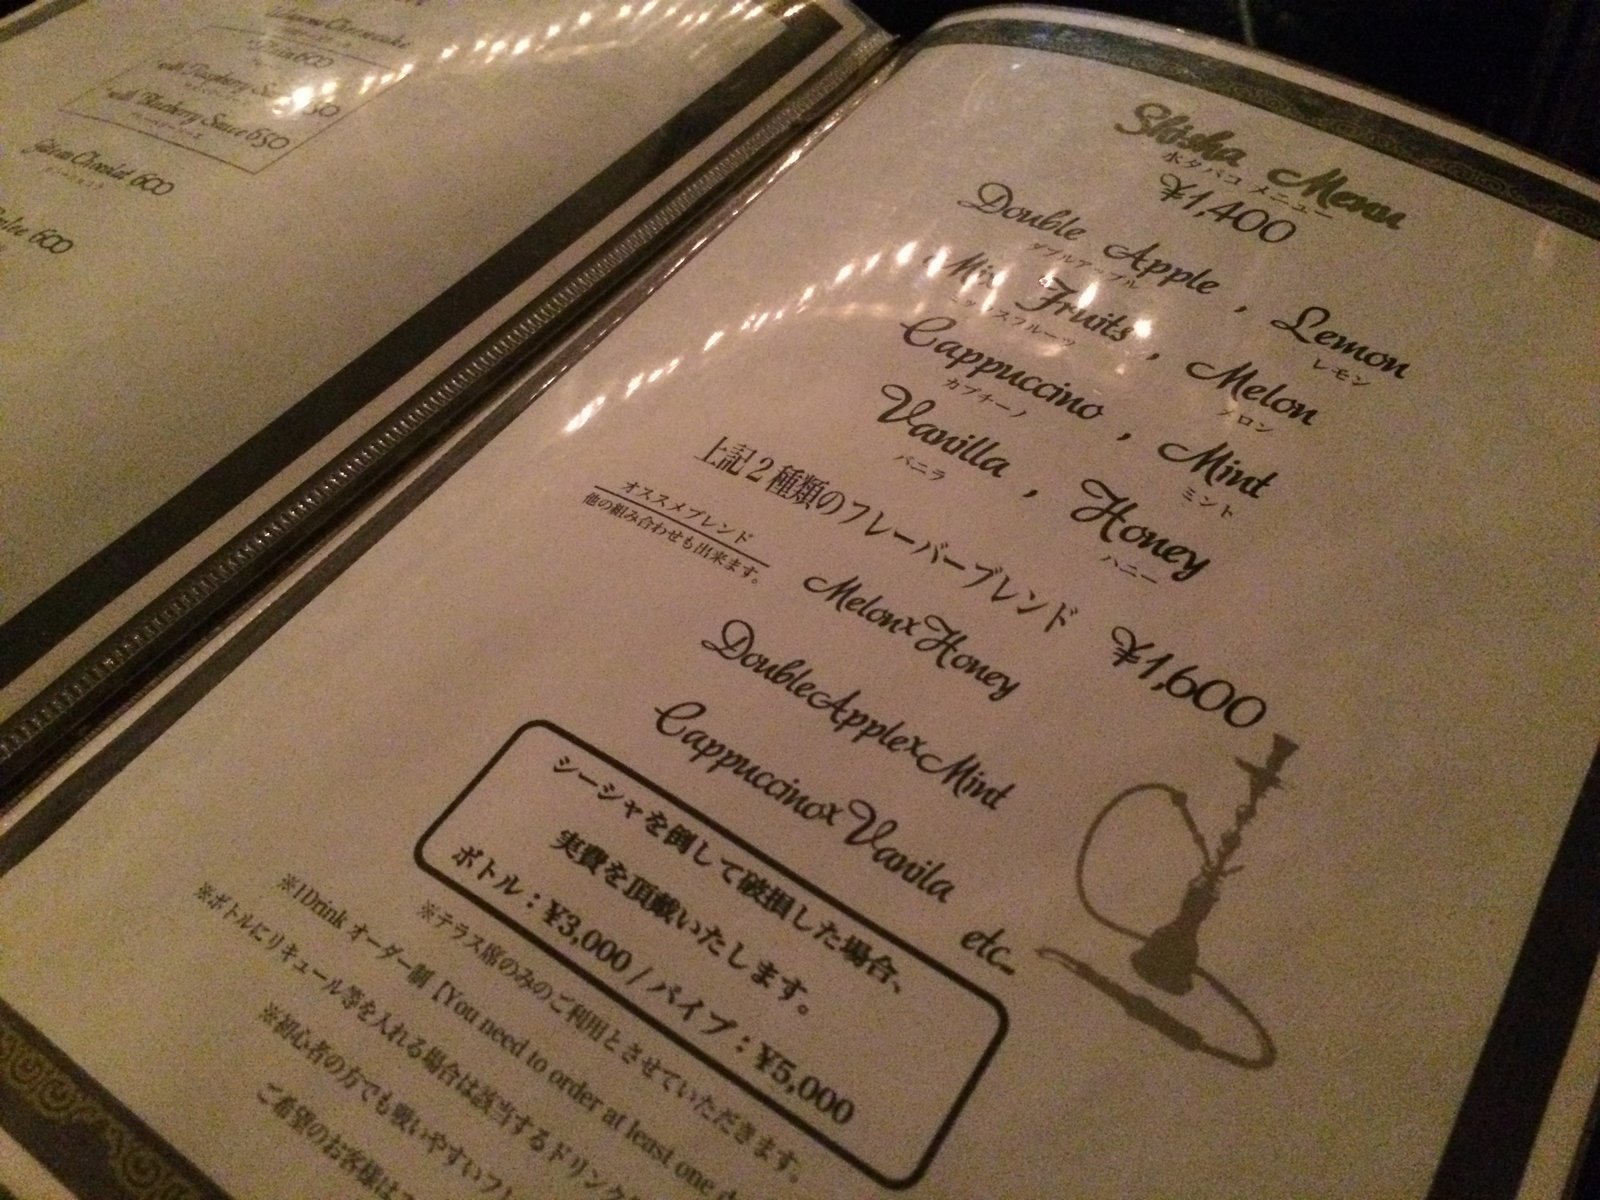 Cheesecake
Plain 600
with Raspberry
with Blueberry Sauce 650
Chocolat 600
600
Shisha Menu
水タバコ メニュー
¥1,400
Double Apple , Lemon
ダブルアップル レモン
Mix Fruits , Melon
ミックスフルーツ メロン
Cappuccino , Mint
カプチーノ ミント
Vanilla , Honey
バニラ ハニー
上記2種類のフレーバーブレンド ¥1,600
オススメブレンド
他の組み合わせも出来ます。
Melon×Honey
DoubleApple×Mint
Cappuccino×Vanila etc..
シーシャを倒して破損した場合、
実費を頂戴いたします。
ボトル：¥3,000 / パイプ：¥5,000
※テラス席のみのご利用とさせていただきます。
※1Drink オーダー制【You need to order at least one
※ボトルにリキュール等を入れる場合は該当するドリンク
※初心者の方でも吸いやすいフ
ご希望のお客様は